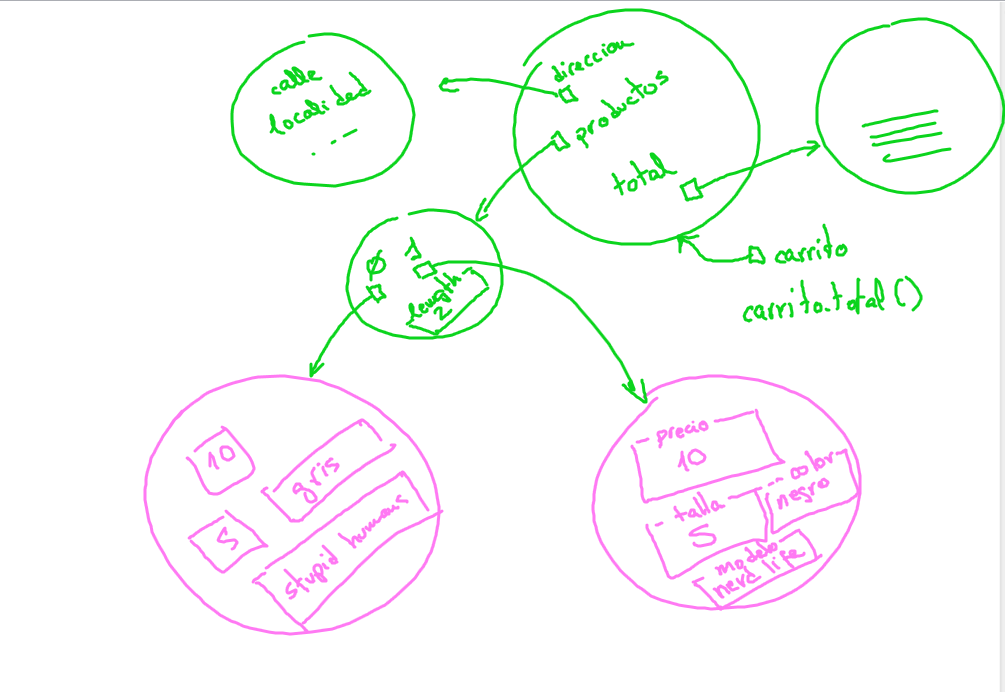 calle
localidad
...
direccion
productos
total
carrito
carrito.total()
0
1
length
2
10
gris
S
stupid humans
precio
10
talla
S
color
negro
modelo
nerd life